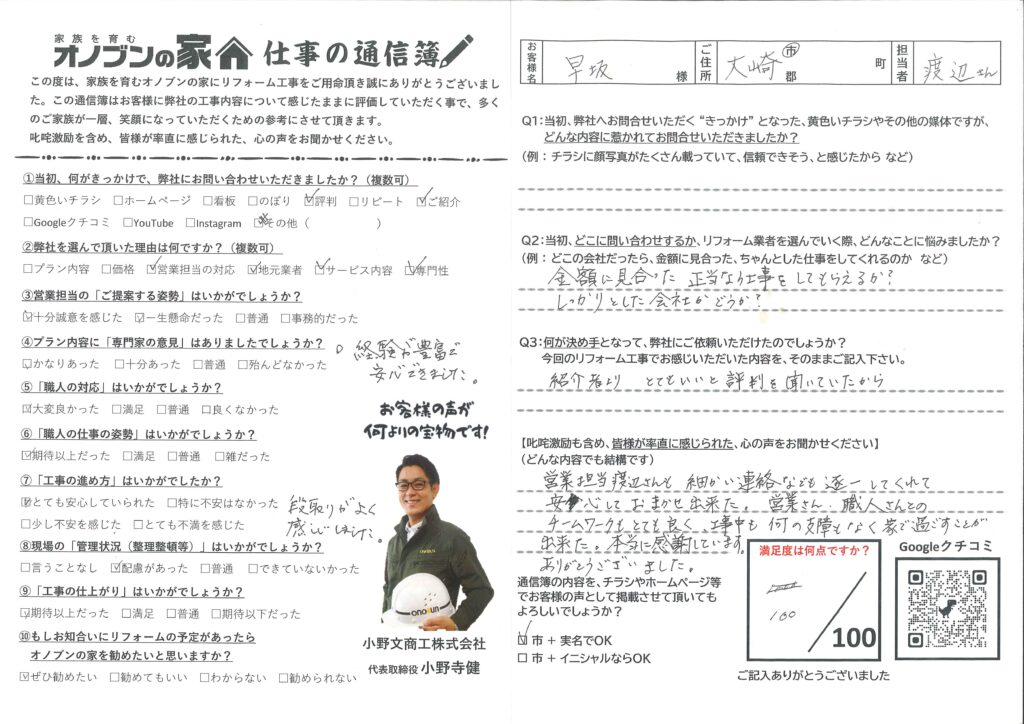 家族を育む
オノブンの家 仕事の通信簿
この度は、家族を育むオノブンの家にリフォーム工事をご用命頂き誠にありがとうございまし
た。この通信簿はお客様に弊社の工事内容について感じたままに評価していただく事で、多く
のご家族が一層、笑顔になっていただくための参考にさせて頂きます。
叱咤激励を含め、皆様が率直に感じられた、心の声をお聞かせください。
①当初、何がきっかけで、弊社にお問い合わせいただきましたか？（複数可）
□黄色いチラシ □ホームページ □看板 □のぼり ☑評判 □リピート ☑ご紹介
□Googleクチコミ □YouTube □Instagram □その他（ ）
②弊社を選んで頂いた理由は何ですか？（複数可）
□プラン内容 □価格 ☑営業担当の対応 ☑地元業者 ☑サービス内容 ☑専門性
③営業担当の「ご提案する姿勢」はいかがでしょうか？
☑十分誠意を感じた ☑一生懸命だった □普通 □事務的だった
④プラン内容に「専門家の意見」はありましたでしょうか？
☑かなりあった □十分あった □普通 □殆んどなかった
経験が豊富で
安心できました。
⑤「職人の対応」はいかがでしょうか？
☑大変良かった □満足 □普通 □良くなかった
⑥「職人の仕事の姿勢」はいかがでしょうか？
☑期待以上だった □満足 □普通 □雑だった
⑦「工事の進め方」はいかがでしたか？
☑とても安心していられた □特に不安はなかった
□少し不安を感じた □とても不満を感じた
段取りがよく
感じました。
⑧現場の「管理状況（整理整頓等）」はいかがでしょうか？
□言うことなし ☑配慮があった □普通 □できていないかった
⑨「工事の仕上がり」はいかがでしょうか？
☑期待以上だった □満足 □普通 □期待以下だった
⑩もしお知合いにリフォームの予定があったら
オノブンの家を勧めたいと思いますか？
☑ぜひ勧めたい □勧めてもいい □わからない □勧められない
お客様の声が
何よりの宝物です！
ONOBUN
onoBUN
小野文商工株式会社
代表取締役 小野寺健
お客様名 早坂 様 ご住所 大崎 市 郡 町 担当者 渡辺さん
Q1：当初、弊社へお問合せいただく “きっかけ” となった、黄色いチラシやその他の媒体ですが、
どんな内容に惹かれてお問合せいただきましたか？
（例：チラシに顔写真がたくさん載っていて、信頼できそう、と感じたから など）
Q2：当初、どこに問い合わせするか、リフォーム業者を選んでいく際、どんなことに悩みましたか？
（例：どこの会社だったら、金額に見合った、ちゃんとした仕事をしてくれるのか など）
金額に見合った 正当なり仕事をしてもらえるか？
しっかりとした会社かどうか？
Q3：何が決め手となって、弊社にご依頼いただけたのでしょうか？
今回のリフォーム工事でお感じいただいた内容を、そのままご記入下さい。
紹介者より とてもいいと評判を聞いていたから
【叱咤激励も含め、皆様が率直に感じられた、心の声をお聞かせください】
（どんな内容でも結構です）
営業担当渡辺さんも 細かい連絡なども逐一してくれて
安心しておまかせ出来た。営業さん 職人さんとの
チームワークもとても良く、工事中も何の支障もなく家で過ごすことが
出来た。本当に感謝しています。
ありがとうございました。
通信簿の内容を、チラシやホームページ等
でお客様の声として掲載させて頂いても
よろしいでしょうか？
☑ 市 + 実名でOK
□ 市 + イニシャルならOK
満足度は何点ですか？
100
100
Googleクチコミ
ご記入ありがとうございました